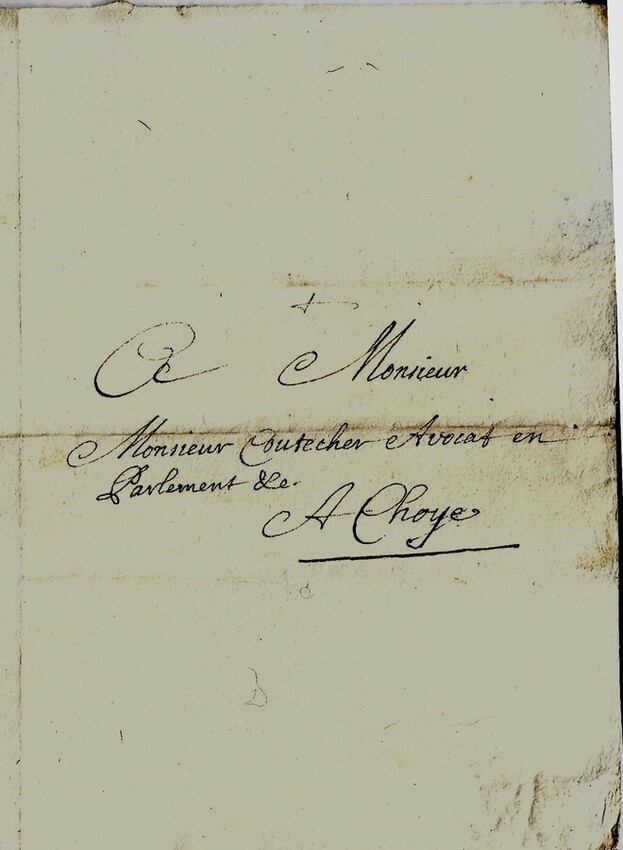 A Monsieur
Monsieur Coutecher Avocat en
Parlement &c.
A Choye